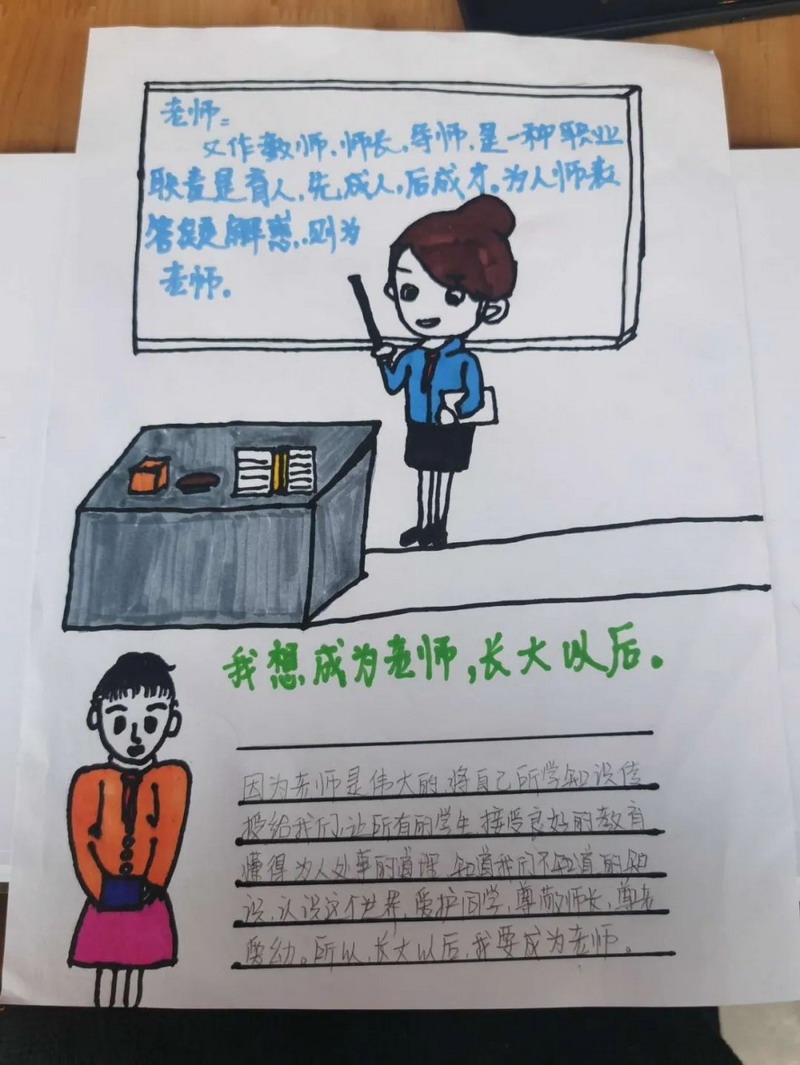 老师：
又作教师、师长、导师，是一种职业
职责是育人，先成人，后成才。为人师表
答疑解惑，则为
老师。
我想成为老师，长大以后。
因为老师是伟大的，将自己所学知识传
授给我们，让所有的学生接受良好的教育
懂得为人处事的道理，知道我们不知道的知
识，认识这个世界，爱护同学，尊敬师长，尊老
爱幼。所以，长大以后，我要成为老师。